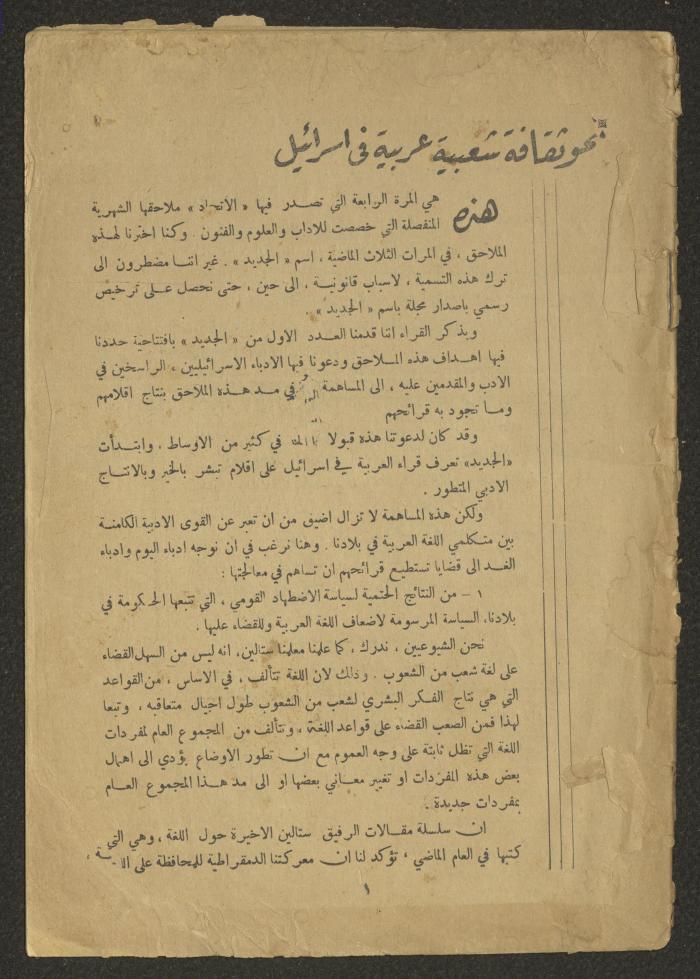 نحو ثقافة شعبية عربية في اسرائيل
هذه هي المرة الرابعة التي تصدر فيها «الاتحاد» ملاحقها الشهرية
المنفصلة التي خصصت للاداب والعلوم والفنون . وكنا اخترنا لهذه
الملاحق ، في المرات الثلاث الماضية ، اسم «الجديد» . غير اننا مضطرون الى
ترك هذه التسمية ، لاسباب قانونية ، الى حين ، حتى نحصل على ترخيص
رسمي باصدار مجلة باسم «الجديد» .
ويذكر القراء اننا قدمنا العدد الاول من «الجديد» بافتتاحية حددنا
فيها اهداف هذه الملاحق ودعونا فيها الادباء الاسرائيليين ، الراسخين في
الادب والمقدمين عليه ، الى المساهمة في مد هذه الملاحق بنتاج اقلامهم
وما تجود به قرائحهم
وقد كان لدعوتنا هذه قبولا في كثير من الاوساط . وابتدأت
«الجديد» تعرف قراء العربية في اسرائيل على اقلام تبشر بالخير وبالانتاج
الادبي المتطور .
ولكن هذه المساهمة لا تزال اضيق من ان تعبر عن القوى الادبية الكامنة
بين متكلمي اللغة العربية في بلادنا . وهنا نرغب في ان نوجه ادباء اليوم وادباء
الغد الى قضايا تستطيع قرائحهم ان تساهم في معالجتها :
١ – من النتائج الحتمية لسياسة الاضطهاد القومي ، التي تتبعها الحكومة في
بلادنا، السياسة المرسومة لاضعاف اللغة العربية وللقضاء عليها .
نحن الشيوعيين ، ندرك ، كما علمنا معلمنا ستالين، انه ليس من السهل القضاء
على لغة شعب من الشعوب . وذلك لان اللغة تتألف ، في الاساس ، من القواعد
التي هي نتاج الفكر البشري لشعب من الشعوب طول اجيال متعاقبه ، وتبعا
لهذا فمن الصعب القضاء على قواعد اللغة ، وتتألف من المجموع العام لمفردات
اللغة التي تظل ثابتة على وجه العموم مع ان تطور الاوضاع يؤدي الى اهمال
بعض هذه المفردات او تغيير معاني بعضها او الى مد هذا المجموع العام
بمفردات جديدة .
ان سلسلة مقالات الرفيق ستالين الاخيرة حول اللغة ، وهي التي
كتبها في العام الماضي ، تؤكد لنا ان معركتنا الدمقراطية للمحافظة على
١